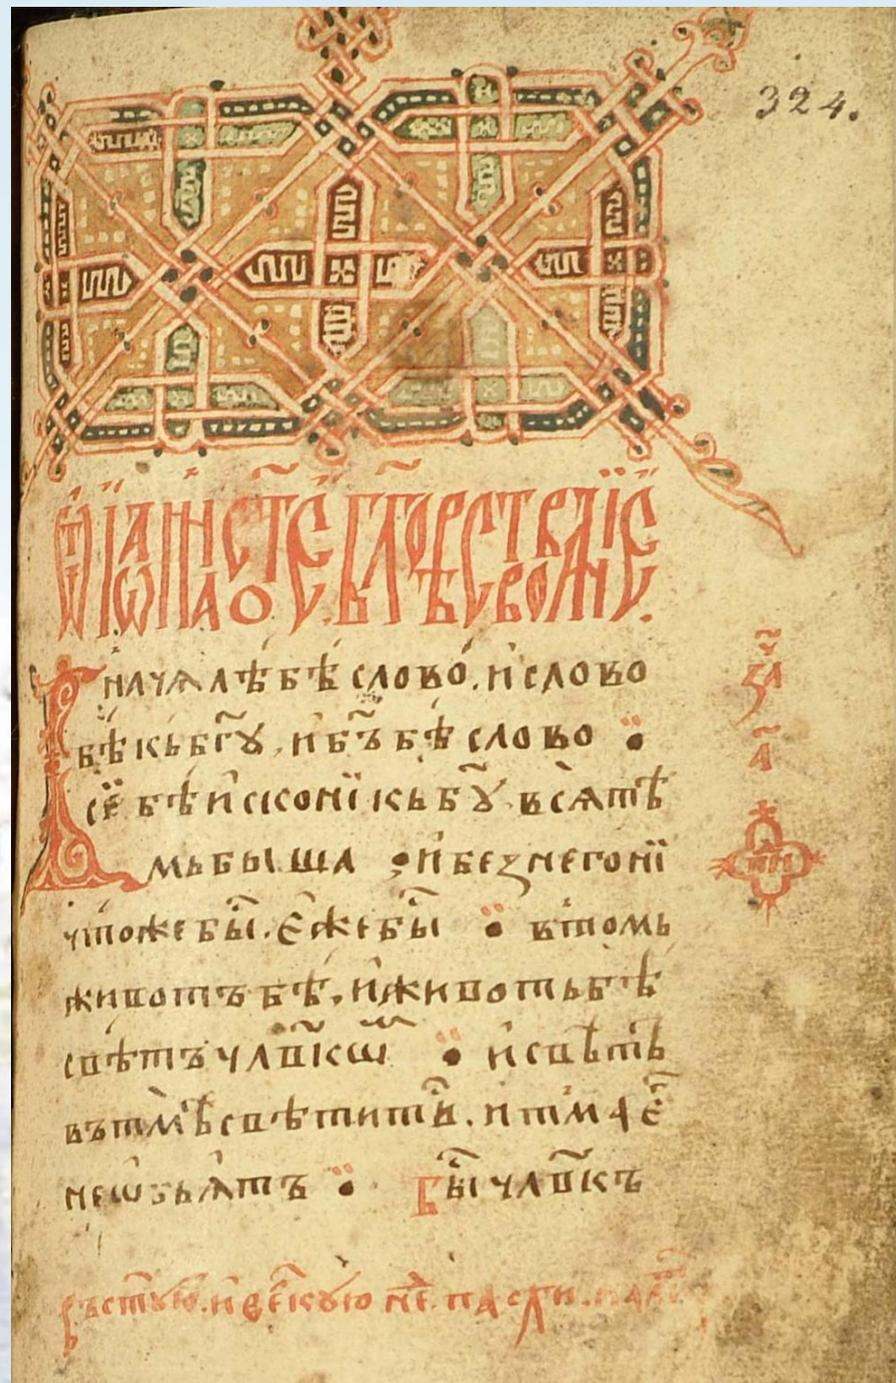 324.
ѿ іѡанна ст҃ое бл҃говѣствованїе.
начѧлѣ бѣ слово, и слово
бѣ къ бг҃ꙋ, и бг҃ъ бѣ слово
се бѣ искони къ бг҃ꙋ. всѧ тѣ
мь быша и без него ни
что же бы. еже бы в томь
животъ бѣ, и животь бѣ
свѣтъ чл҃вкѡ и свѣть
въ тмѣ свѣтитьⷭ. и тма е
не ѡбьѧтъ Бы чл҃вкъ